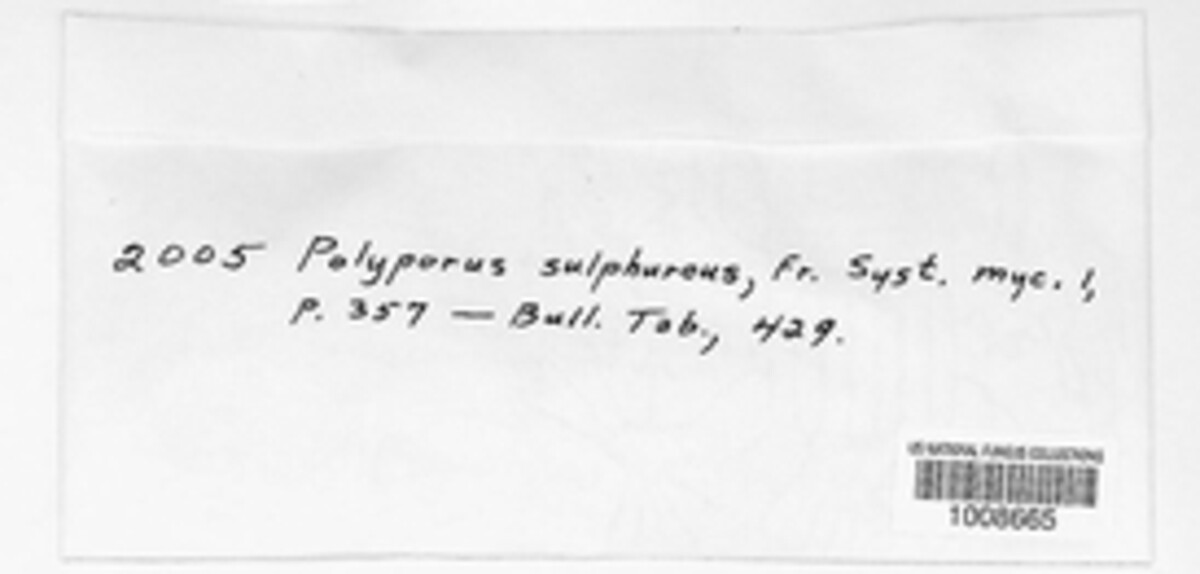 2005 Polyporus sulphureus, Fr. Syst. myc. 1,
p. 357 — Bull. Tab., 429.
US NATIONAL FUNGUS COLLECTIONS
1008665